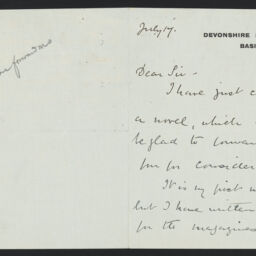 July 17.
DEVONSHIRE
BAS
Dear Sir -
I have just c
a novel, which
be glad to forwar
for consider
It is my first n
but I have written
for the magazines